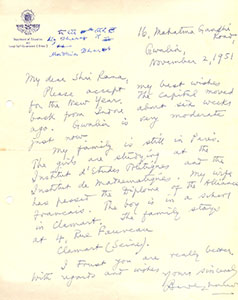 16, Mahatma Gandhi
Road,
Gwalior,
November 2, 1951
My dear Shri Rana,
Please accept my best wishes
for the New Year. The Capital moved
back to Indore about six weeks
ago. Gwalior is very moderate
just now.
My family is still in Paris.
The girls are studying at the
Institut d'Etudes Politiques and the
Institut de Mathematiques. My wife
has passed the Diploma of the Alliance
Francais. The boy is in a school
in Clamart. The family stays
at 4, Rue
Clamart (Seine).
I trust you are really better
with regards and wishes
yours sincerely